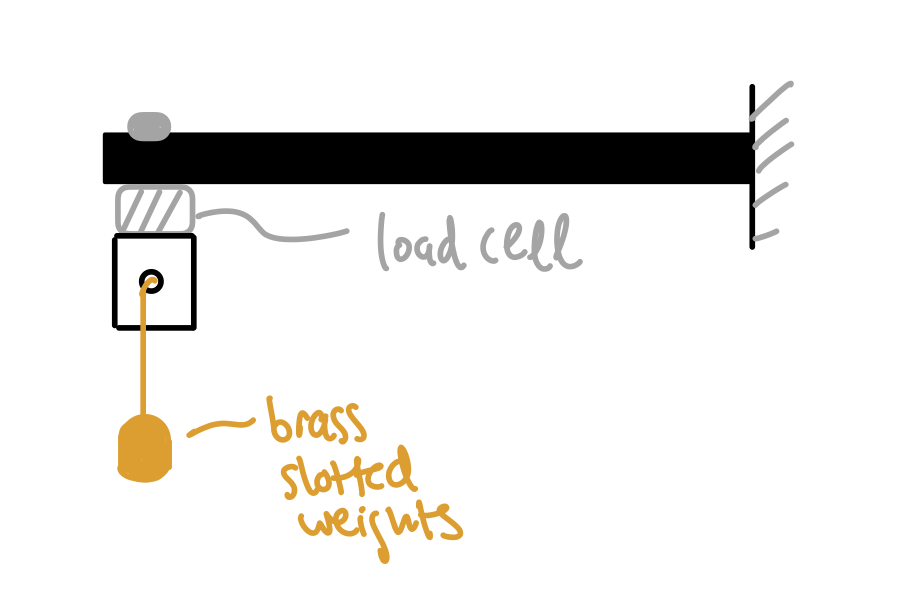 load cell
brass
slotted
weights